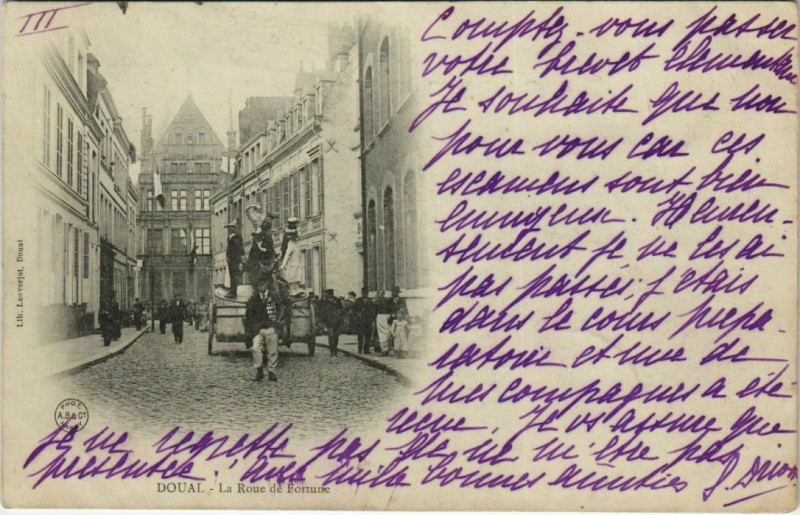 III
Comptez-vous passer
votre brevet élémentaire
Je souhaite que non
pour vous car ces
escamens sont bien
ennuyeux. Heureu-
sement je ne les ai
pas passés, j'étais
dans le cours prépa-
ratoire et une de
mes compagnes a été
reçue. Je vs assure que
je ne regrette pas de ne m'être pas
présentée! avec mille bonnes amitiés
Lib. Lauverjat, Douai
PHOT.
A.B & Cie
NANCY
DOUAI. - La Roue de Fortune